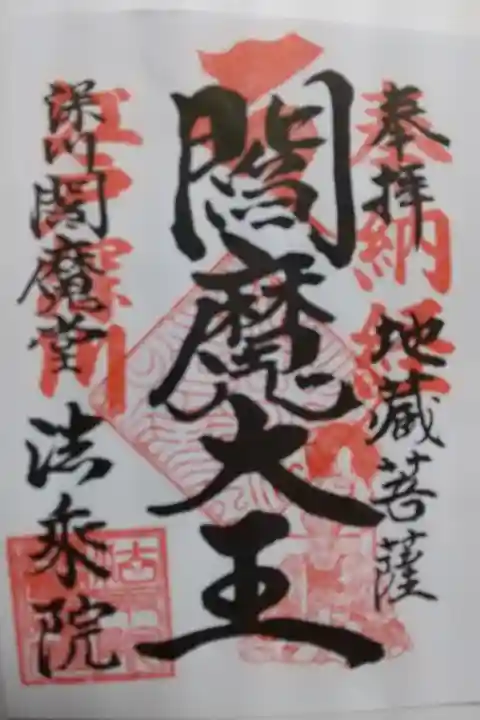 奉拝
奉納経
地蔵菩薩
閻魔大王
江戸深川
深川閻魔堂
法乗院